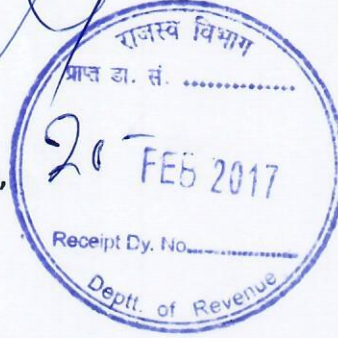 राजस्व विभाग
प्राप्त डा. सं. ....................
20 FEB 2017
Receipt Dy. No....................
Deptt. of Revenue